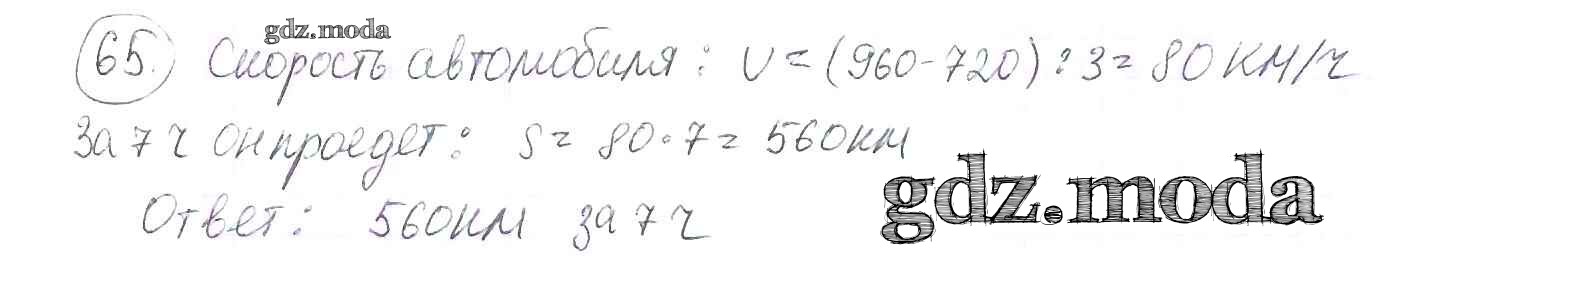 gdz.moda
65. Скорость автомобиля: V = (960-720):3 = 80 км/ч
За 7 ч он проедет: S = 80·7 = 560 км
gdz.moda
Ответ: 560 км за 7 ч